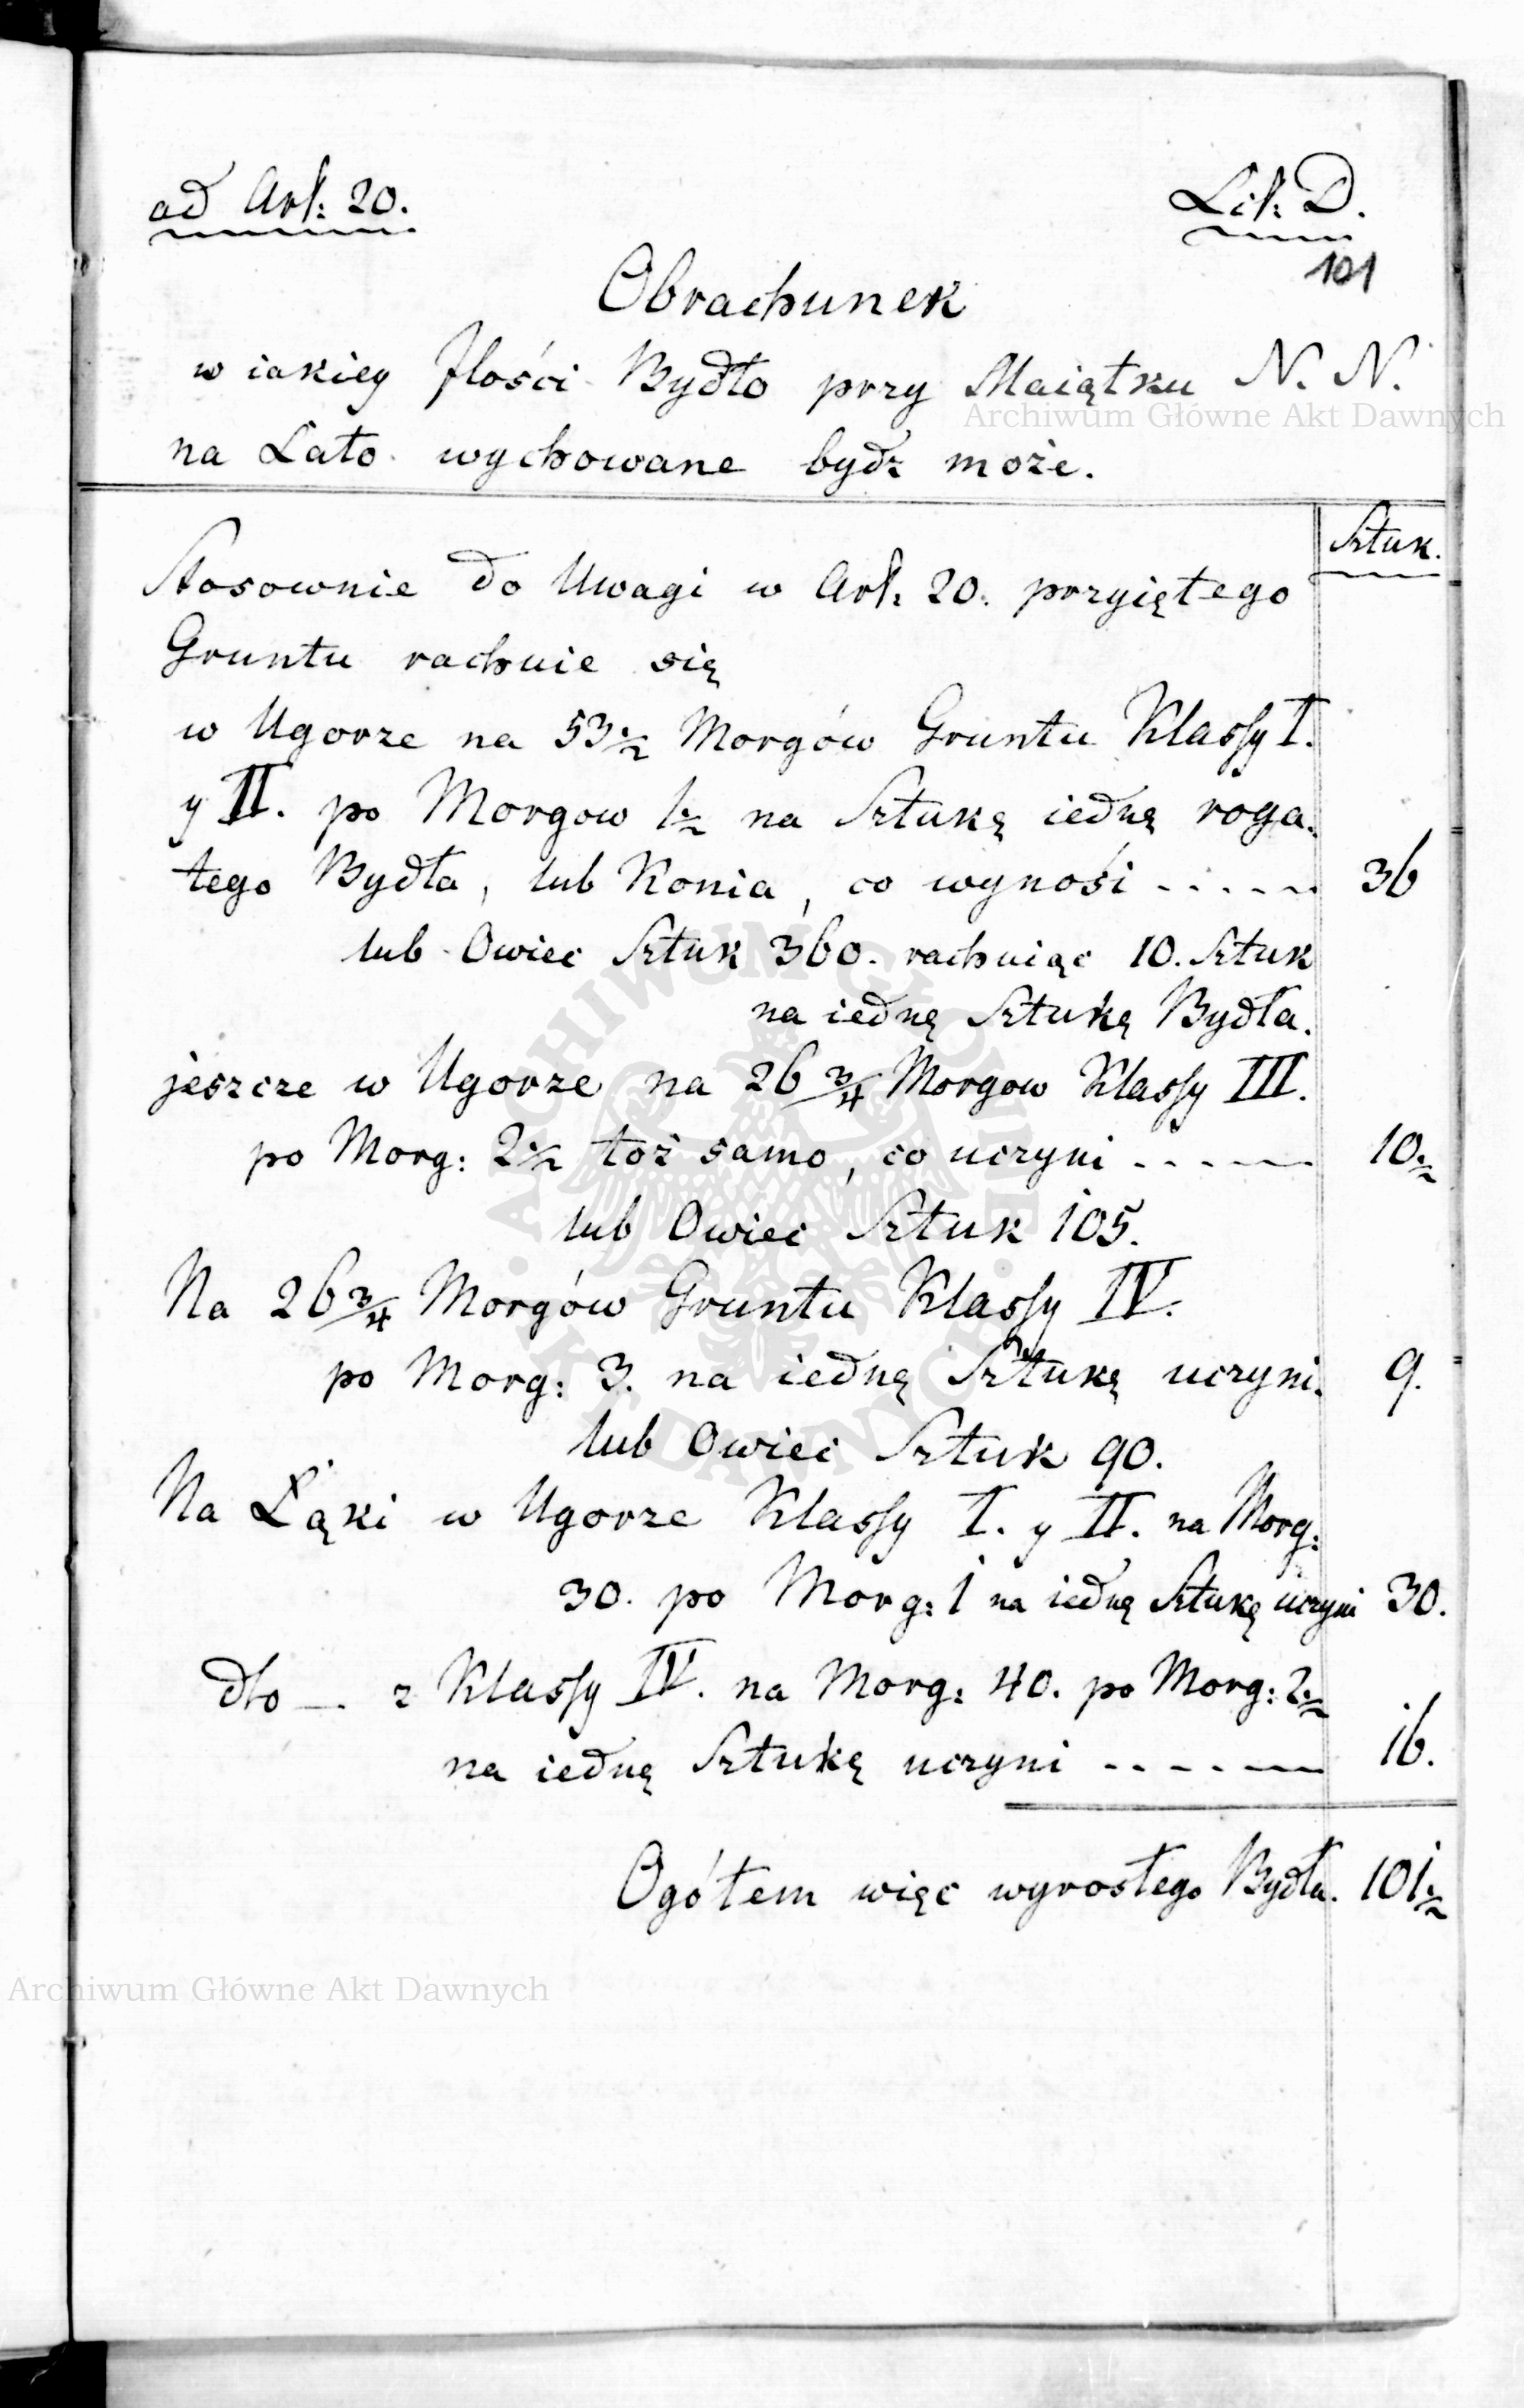 ad Art: 20.
Lit. D.
101
Obrachunek
w iakiey Jlości Bydło przy Maiątku N. N.
na Lato wychowane bydź może.
Sztuk.
Stosownie do Uwagi w Art: 20. przyiętego
Gruntu rachuie się
w Ugorze na 53½ Morgów Gruntu Klassy I.
y II. po Morgow 1½ na Sztukę iednę roga-
tego Bydła, lub Konia, co wynośi - - - - - 36
lub Owiec Sztuk 360. rachuiąc 10. Sztuk
na iednę Sztukę Bydła.
jeszcze w Ugorze na 26¾ Morgow Klassy III.
po Morg: 2½ toż samo, co uczyni - - - - 10½
lub Owiec Sztuk 105.
Na 26¾ Morgów Gruntu Klassy IV.
po Morg: 3. na iednę Sztukę uczyni. 9.
lub Owiec Sztuk 90.
Na Łąki w Ugorze Klassy I. y II. na Morg:
30. po Morg: 1 na iednę Sztukę uczyni 30.
dto — z Klassy IV. na Morg: 40. po Morg: 2½
na iednę Sztukę uczyni - - - - - 16.
Ogółem więc wyrosłego Bydła. 101½
Archiwum Główne Akt Dawnych
Archiwum Główne Akt Dawnych
ARCHIWUM GŁÓWNE AKT DAWNYCH